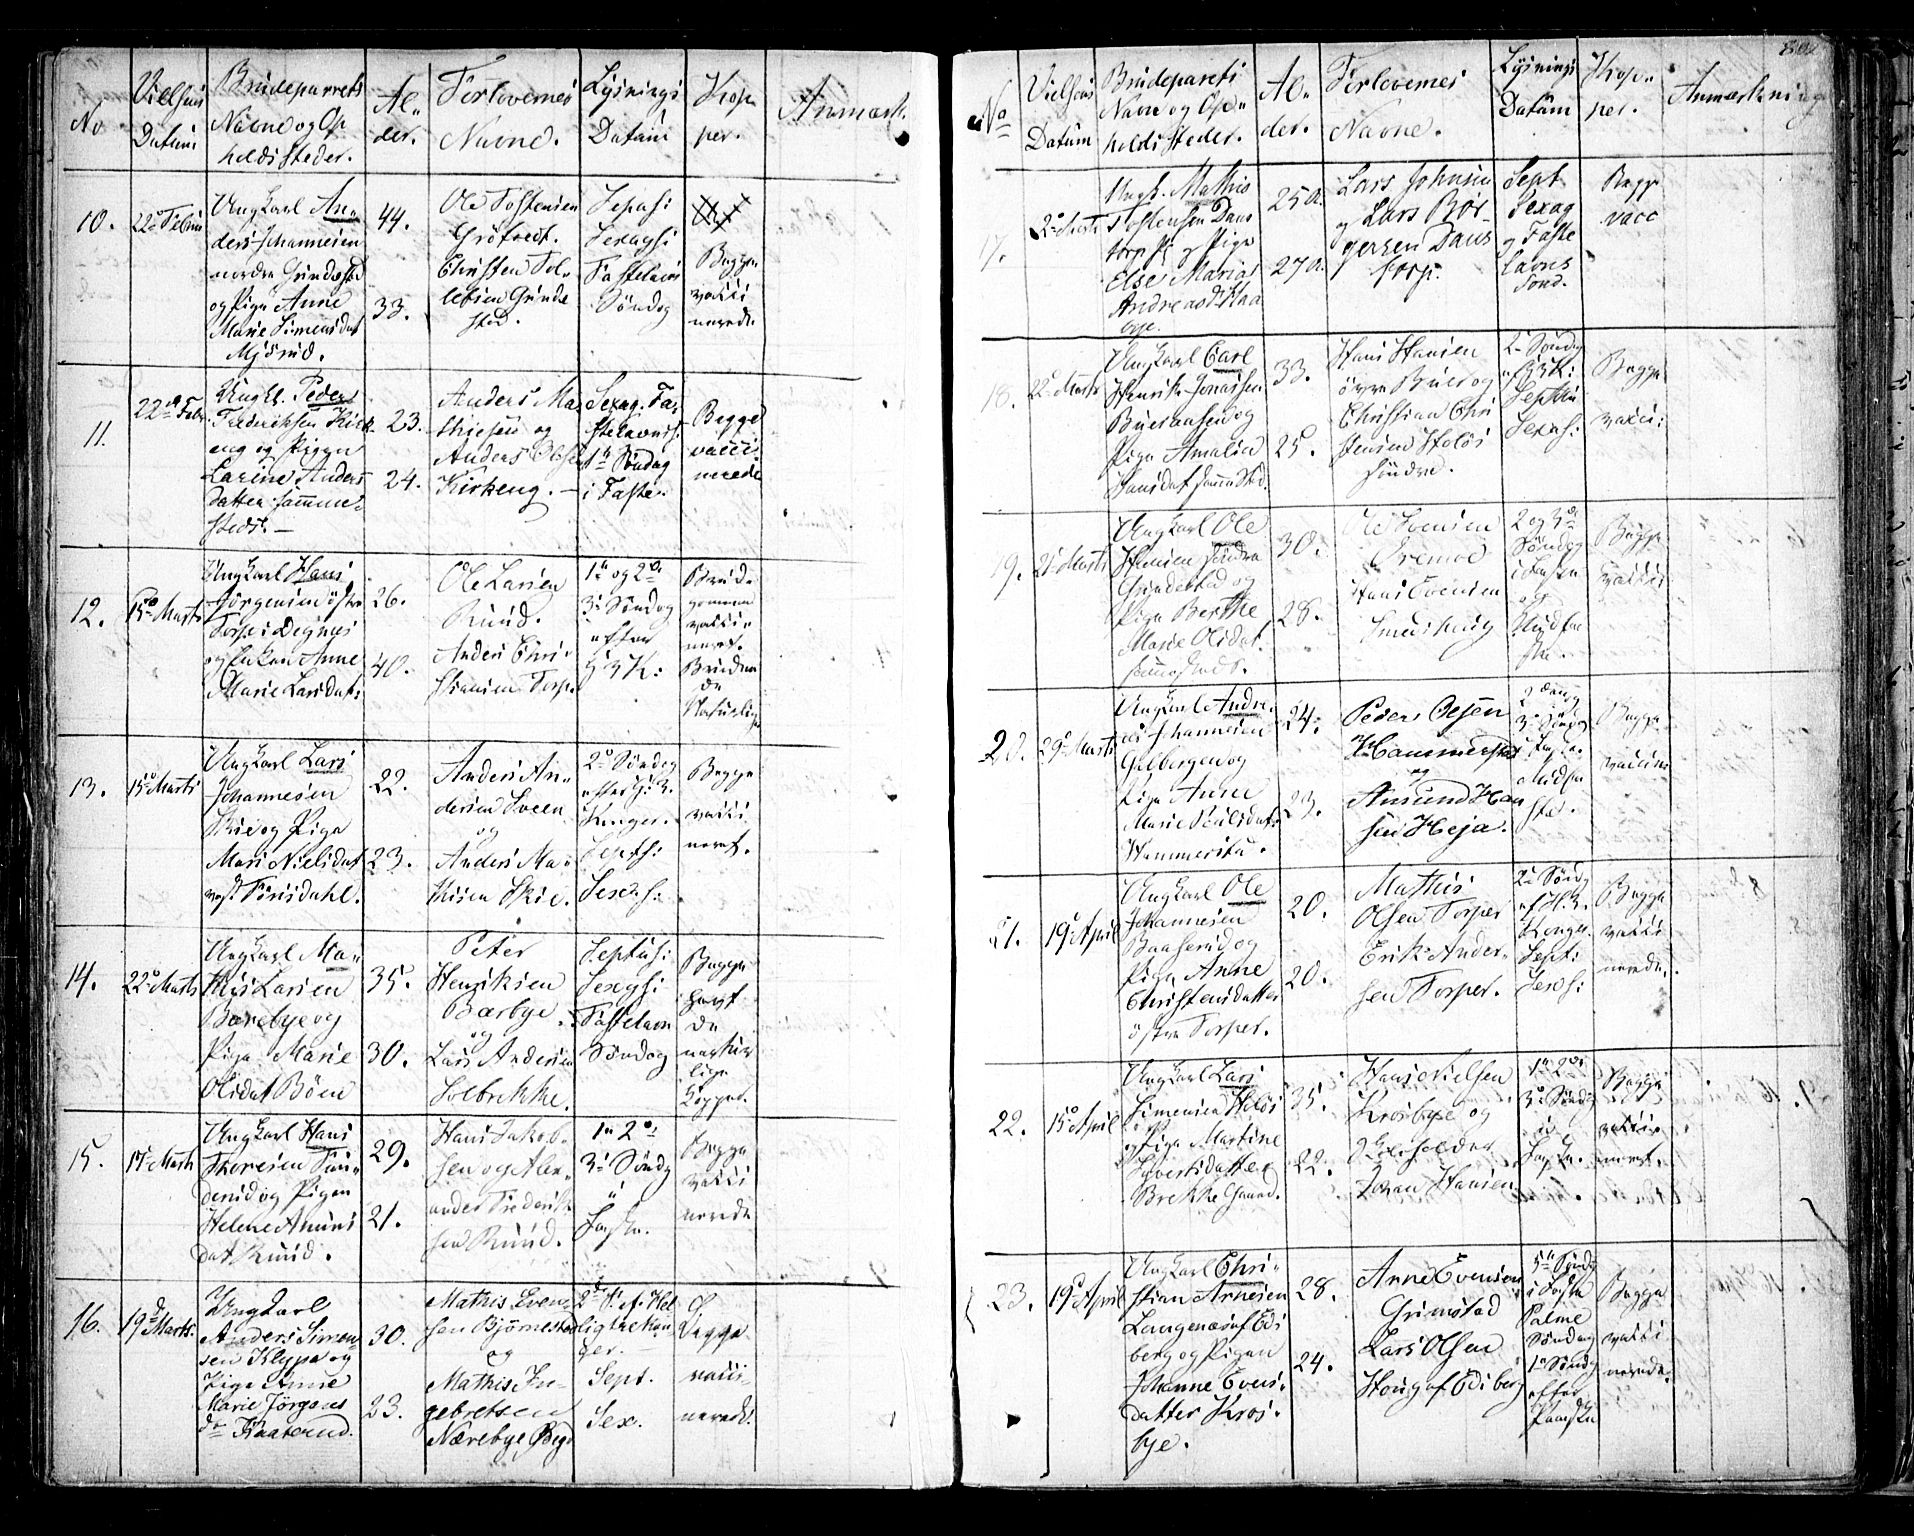 No
Vielses
Datum
Brudeparrets
Navne og Op
holdssteder.
Al-
der.
Forlovernes
Navne.
Lysnings
Datum
Kop
per.
Anmærk.
10.
22 Febru
Ungkarl An-
ders Johannesen
nordre Grindstad
og Pige Anne
Marie Simensdat
Mjörud.
44.
33.
Ole Tostensen
Christen Tol-
lefsen Grinde
stad.
Sepas:
Sexags:
Fastelavns
Söndag
Begge
vacci
nerede
11.
22de Febr.
Ungk. Peder
Frederiksen Kirk-
eng og Pigen
Larine Anders
datter samme-
steds. —
23.
24.
Anders Ma-
thiesen og
Anders Olsen
Kirkeng. —
Sexag. Fa-
stelavns:
1ste Söndag
i Faste.
Begge
vacci-
nerede
12.
15de Marts
Ungkarl Hans
Jörgensen östre
Torp i Degnes
og Enken Anne
Marie Larsdat:
26.
40.
Ole Larsen
Ruud.
Anders Chri-
stiansen Torp.
1ste og 2den
3die Söndag
efter
H 3 K:
Brud-
gommen
vacci-
neret.
Bruden
de
Naturlige
13.
15 Marts
Ungkarl Lars
Johannesen
Skie og Pige
Mari Nielsdat
22.
23.
Anders An-
dersen Sveen
og
Anders Ma-
thisen Skie.
2 Söndag
efter H. 3.
Konger.
Septs:
Sexs:
Begge
vacci
neret.
14.
22 Marts
Ungkarl Ma-
this Larsen
Bærebye og
Pige Marie
Olsdat Böen
35.
30.
Peter
Henriksen
Bærbye
og
Lars Andersen
Solbrekke.
Septus:
Sexgs:
Fastelavn
Söndag
Begge
havt
de
naturlige
Kopper.
15.
Ungkarl Hans
Thoresen
og Pigen
Helene Amuns
dat Ruud.
29.
21.
Hans Jakob-
sen og Alex-
ander Frederik-
sen Ruud.
1ste 2den
3die Söndg
i
Faste.
Begge
vacci
nerede
16.
19d Marts.
Ungkarl
Anders Simen-
sen Klype og
Pige Anne
Marie Jörgens
da
30.
23.
Mathis Even-
sen Björnestad
og
Mathis In-
gebretsen
Nærebye
2den S. ef. Hel
lig tre Kon
ger. —
Sept.
Sex.
Begge
vacci-
nerede.
No
Vielses
Datum
Brudeparets
Navne og Op-
holdssteder.
Al-
der.
Forlovernes
Navne.
Lysnings
Datum
Kop-
per.
Anmærkning
17.
2 Marts
Ungk. Mathis
Tostensen Dans
torp og Pige
Else Maria
Andreasd.
bye.
25 a.
27 a.
Lars Johnsen
og Lars Bör-
gersen Dans
torp.
Sept
Sexag
og Faste
lavns
Sönd.
Begge
vacc
18.
22 Marts
Ungkarl Carl
Henrik Jonassen
Bueraasen og
Pige Amalia
Hansdat samme Sted.
33.
25.
Hans Hansen
övre Bue og
Christian Chri
stensen Holös
söndre.
2 Söndg
ef H 3 K:
Septu
Sexas:
Begge
vacci:
19.
25 Marts
Ungkarl Ole
Hansen söndre
Grindestad og
Pige Berthe
Marie Olsdat.
sammesteds.
30.
28.
Ole Svensen
Hans Evensen
Smedshaug
2 og 3de
Söndag
i Fasten
og
Midfa
ste.
Begge
vacci
20.
29 Marts
Ungkarl Andre-
as Johannesen
Gulbergen og
Pige Anne
Marie Poulsdat:
Hammersta.
24.
23.
Peder Olsen
Hammerstad
og
Amund Han
sen Heja.
2den og
3die Söndg
i Faste.
Midfa
ste.
Begge
vaccine
21.
19 April
Ungkarl Ole
Johannesen
Baaserud og
Pige Anne
Christensdatter
östre Torper.
20.
20.
Mathis
Olsen Torper
Erik Ander-
sen Torper.
2 Söndg
ef H. 3.
Konger.
Sept:
Sexs:
Begge
vacci
nerede.
22.
15 April
Ungkarl Lars
Simensen Holös
og Pige Martine
Syvertsdatter
Brekke
35.
22.
Hans Nielsen
Krosbye og
Johan Hansen
1ste 2den
3die Söndg
i
Faste.
Begge
vacci-
neret.
23.
19 April
Ungkarl Chri-
stian Arnesen
Langenæs af Edi
berg og Pigen
Johanne Evens-
datter Kros-
bye.
28.
24.
Arne Evensen
Grimstad
Lars Olsen
Houg af Ediberg
5te Söndg
i Faste
Palme
Söndag
1ste Söndg
efter
Paaske
Begge
vacci
nerede.